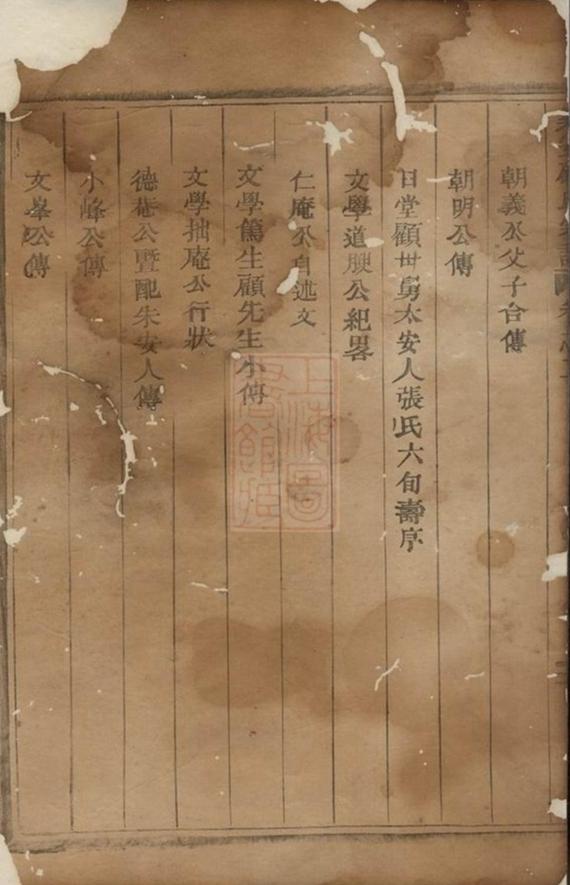 朝義公父子合傳
朝明公傳
日堂顧世舅太安人張氏六旬壽序
文學道腴公紀畧
仁庵公自述文
文學篤生顧先生小傳
文學拙庵公行狀
德菴公暨配朱安人傳
小峰公傳
文峯公傳
上海圖書館